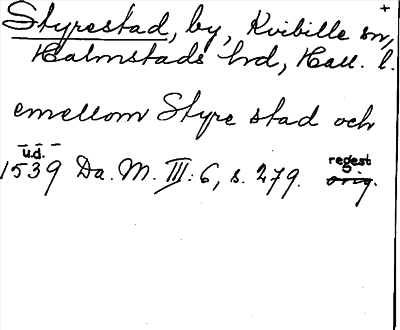 +
Styrestad, by, Kvibille sn,
Halmstads hd, Hall. l.
emellom Styre stad och
u.d.
1539 Da. M. III: 6, s. 279. orig.
regest